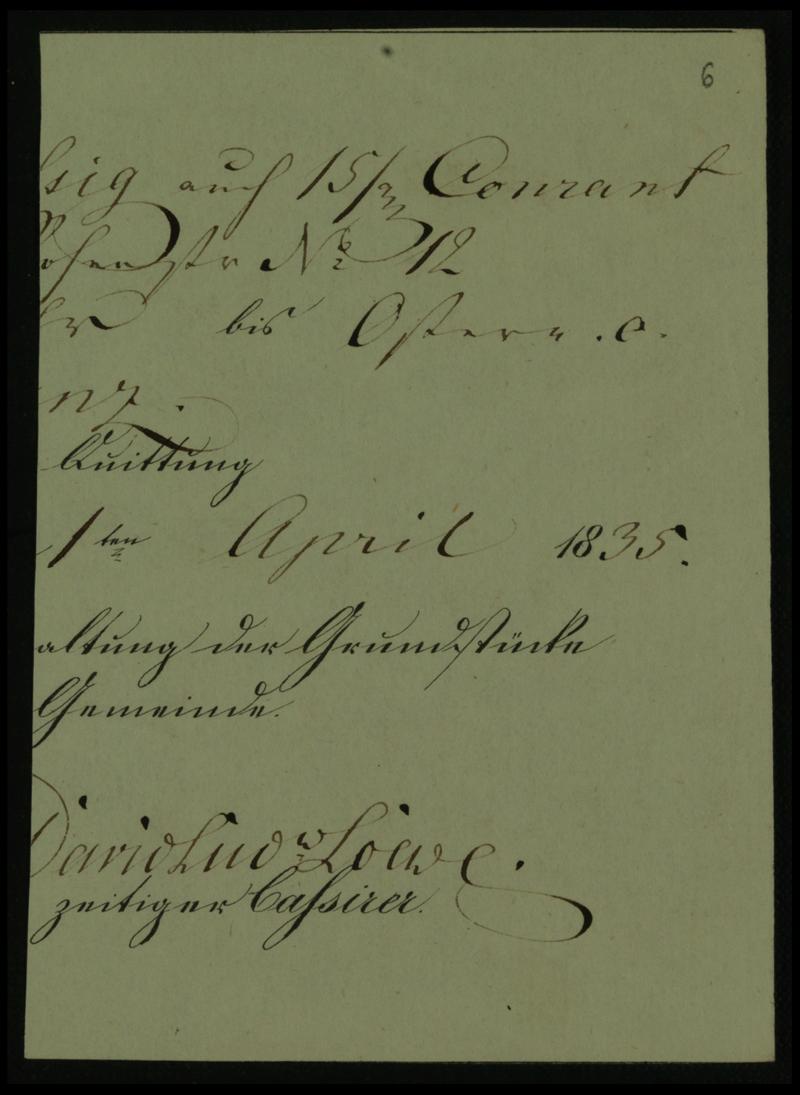 6
ssig auch 15/m Courant
ofenstr No 12
hr bis Ostern . c.
Quittung
1ten April 1835.
altung der Grundstücke
Gemeinde.
David Ludw Löwe.
zeitiger Cassirer.